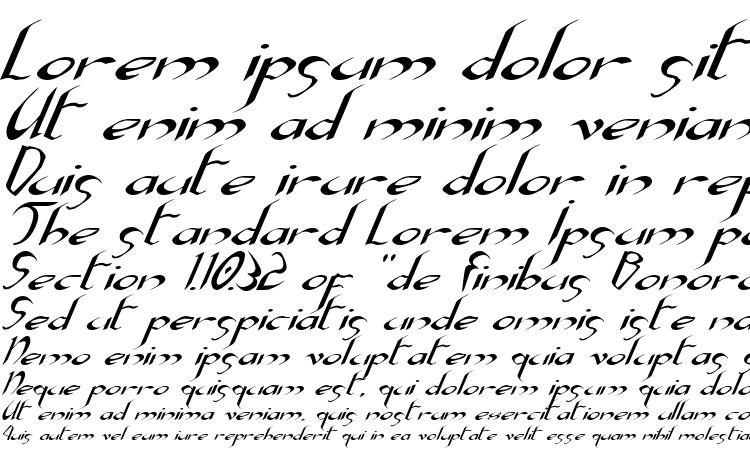 Lorem ipsum dolor sit
Ut enim ad minim veniam
Duis aute irure dolor in rep
The standard Lorem Ipsum pa
Section 1.10.32 of "de Finibus Bonoru
Sed ut perspiciatis unde omnis iste na
Nemo enim ipsam voluptatem quia voluptas s
Neque porro quisquam est, qui dolorem ipsum quia dolo
Ut enim ad minima veniam, quis nostrum exercitationem ullam co
Quis autem vel eum iure reprehenderit qui in ea voluptate velit esse quam nihil molestia